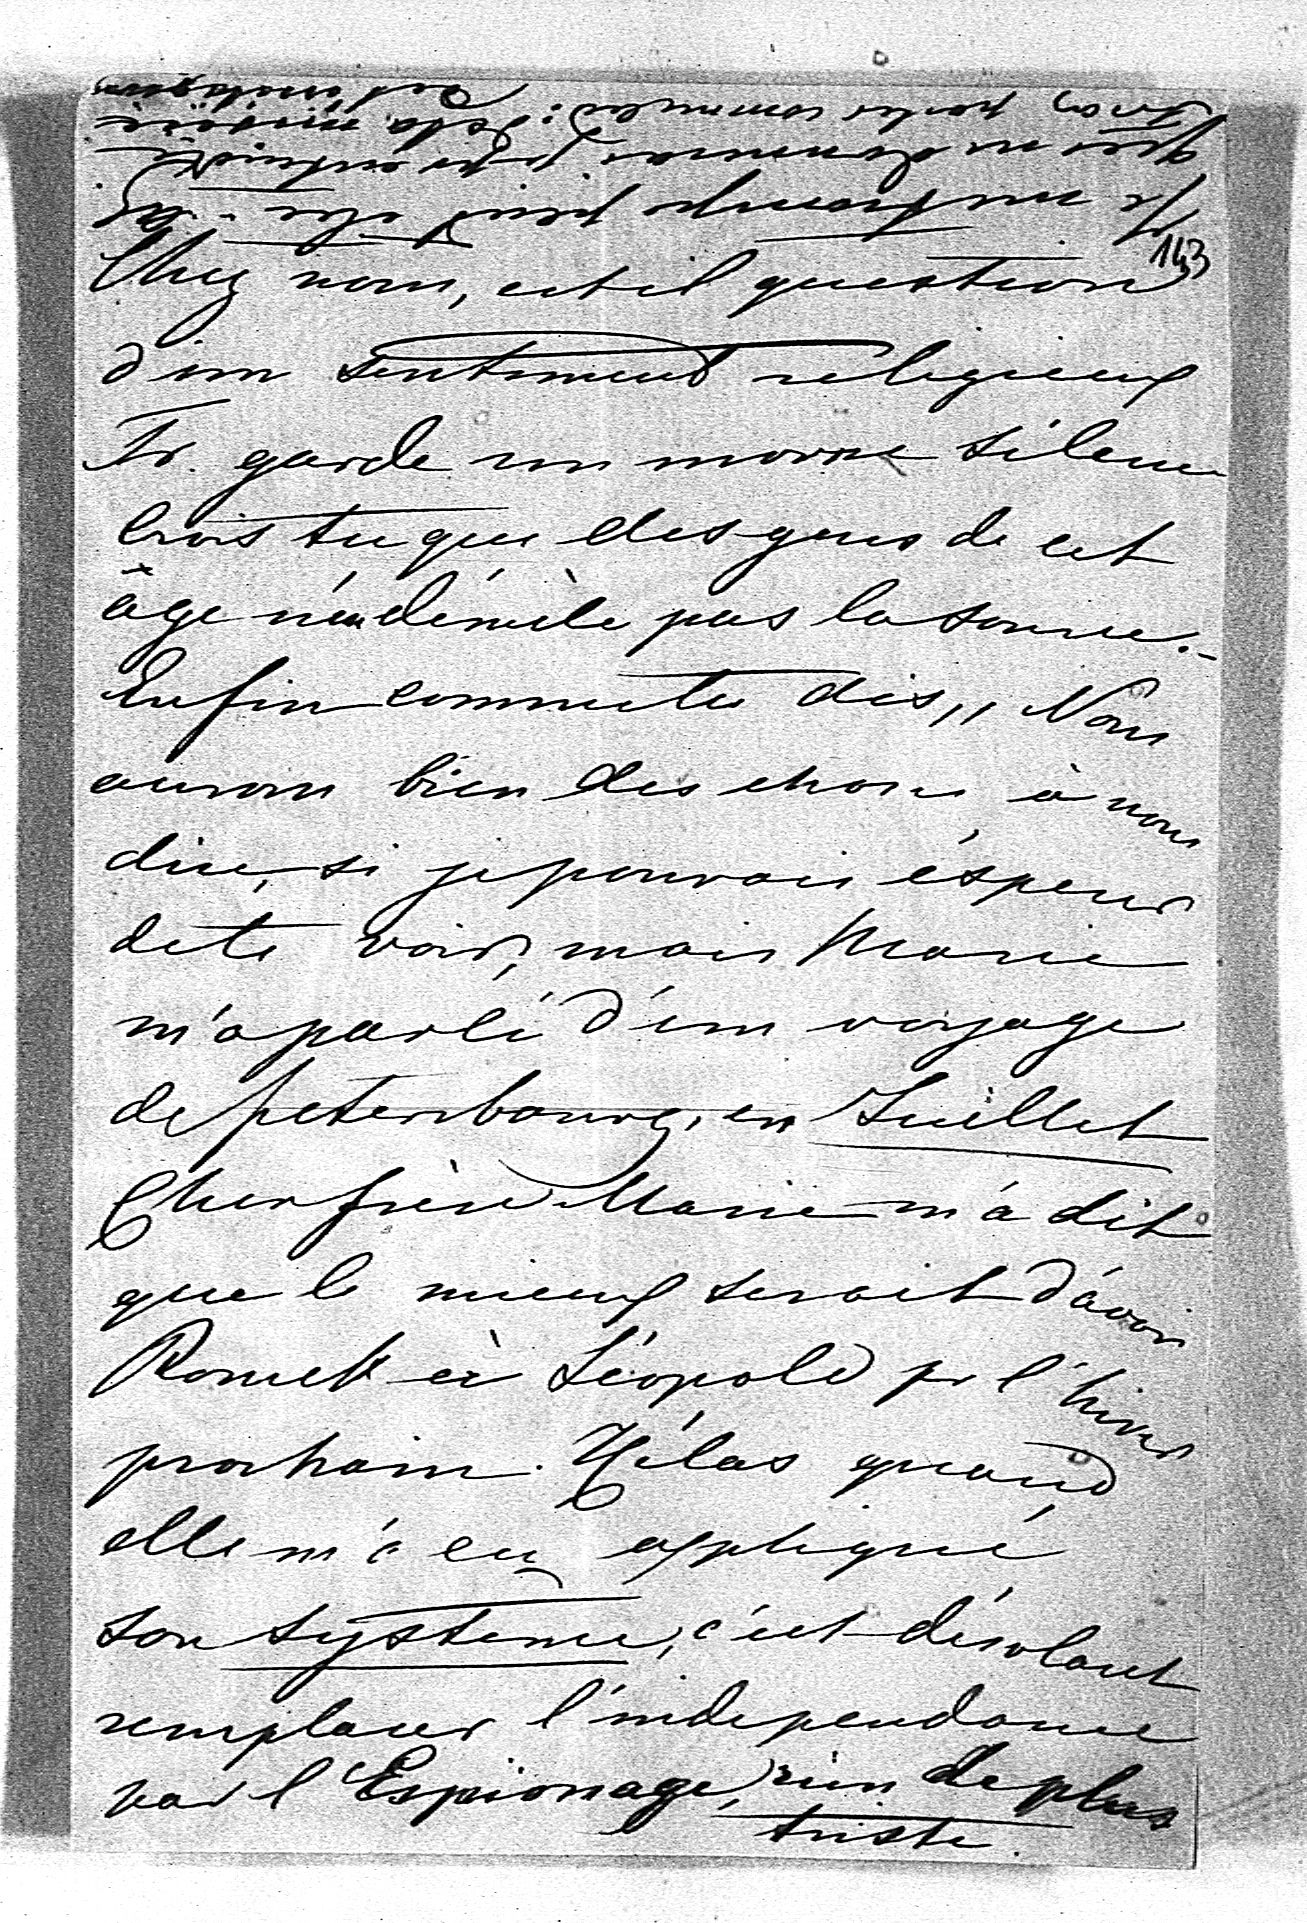 143
Chez nous, est il question
d'un sentiment religieux
Fr. garde un morne silence
Crois tu que des gens de cet
âge n'en démêle pas la source.-
Enfin comme tu dis,, Nous
aurons bien des choses à nous
dire, si je pouvais éspérer
de te voir, mais Marie
m'a parlé d'un voyage
de petersbourg, en Juillet
Cher frère Marie m'a dit
que le mieux serait d'avoir
Romek à Léopold pr l'hiver
prochain. Hélas quand
elle m'a eu expliqué
son système, c'est désolant
remplacer l'independance
par l'Espionage, rien de plus
triste.